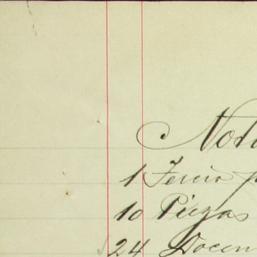 Not
1 Tercio p
10 Piezas
24 Docen